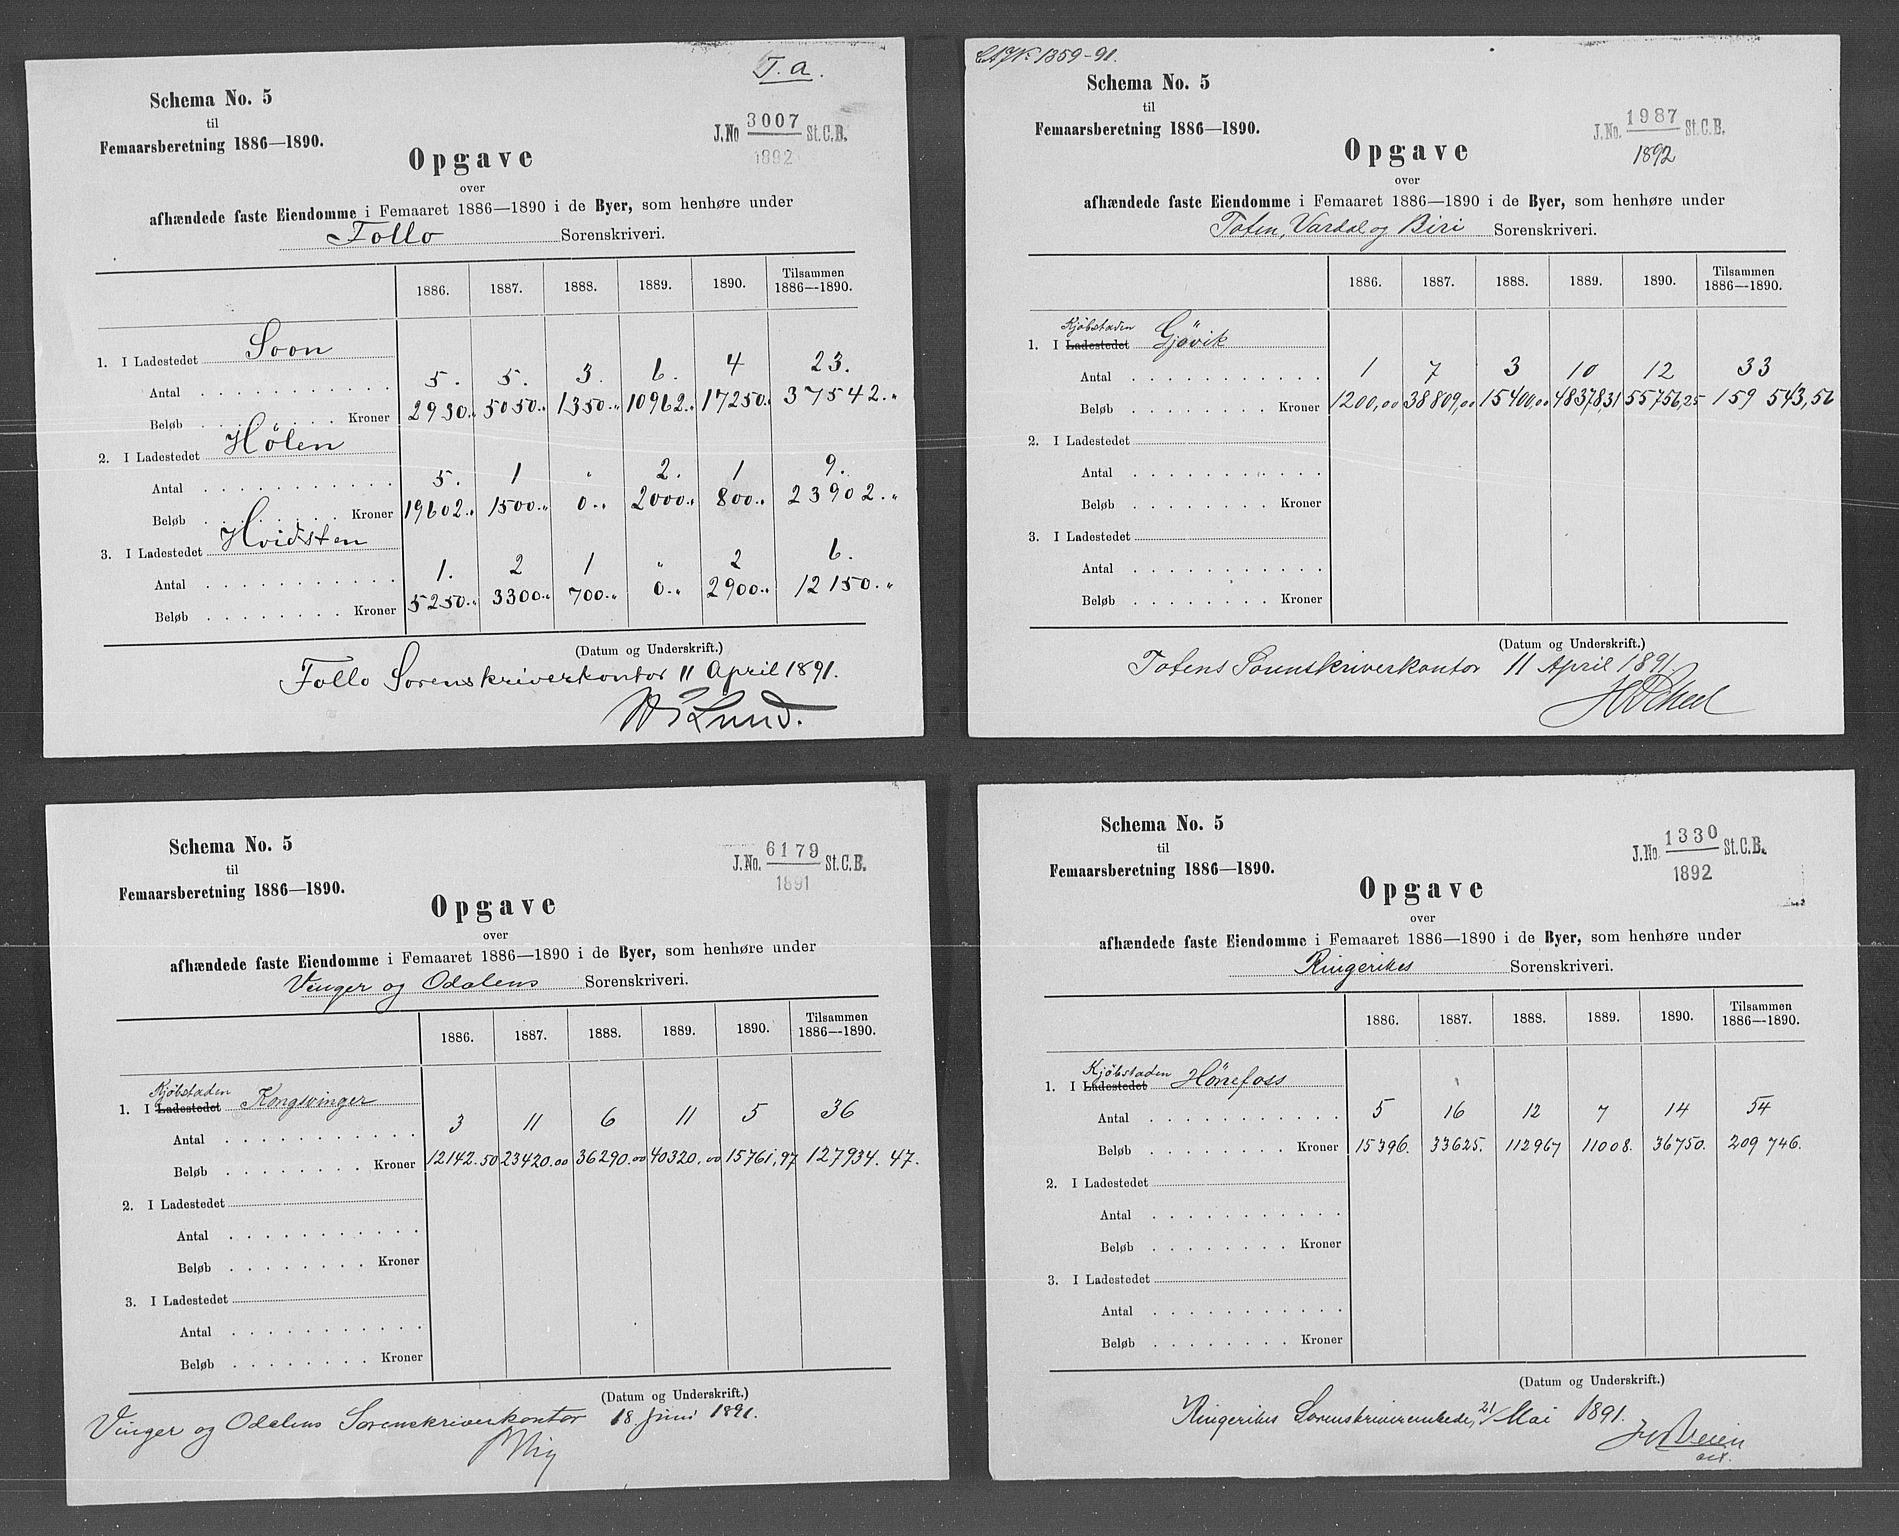 T. a.
Schema No. 5
til
Femaarsberetning 1886—1890.
J.No 3007 St.C.B.
1892
Opgave
over
afhændede faste Eiendomme i Femaaret 1886—1890 i de Byer, som henhøre under
Follo Sorenskriveri.
1886. 1887. 1888. 1889. 1890. Tilsammen 1886—1890.
1. I Ladestedet Soon
Antal 5. 5. 3. 6. 4 23.
Beløb Kroner 2930.„ 5050.„ 1350.„ 10962.„ 17250.„ 37542.„
2. I Ladestedet Hølen
Antal 5. 1 „ 2. 1 9.
Beløb Kroner 19602.„ 1500.„ 0.„ 2000.„ 800.„ 23902.„
3. I Ladestedet Hvidsten
Antal 1. 2 1 „ 2 6.
Beløb Kroner 5250.„ 3300.„ 700.„ 0.„ 2900.„ 12150.„
(Datum og Underskrift.)
Follo Sorenskriverkontor 11 April 1891.
Lund.
No 1359-91.
Schema No. 5
til
Femaarsberetning 1886—1890.
J.No. 1987 St.C.B.
1892
Opgave
over
afhændede faste Eiendomme i Femaaret 1886—1890 i de Byer, som henhøre under
Toten, Vardal og Biri Sorenskriveri.
1886. 1887. 1888. 1889. 1890. Tilsammen 1886—1890.
Kjøbstaden
1. I Ladestedet Gjøvik
Antal 1 7 3 10 12 33
Beløb Kroner 1200,00 38809,00 15400,00 48378,31 55756,25 159 543,56
2. I Ladestedet
Antal
Beløb Kroner
3. I Ladestedet
Antal
Beløb Kroner
(Datum og Underskrift.)
Totens Sorenskriverkontor 11 April 1891.
Schema No. 5
til
Femaarsberetning 1886—1890.
J.No. 6179 St.C.B.
1891
Opgave
over
afhændede faste Eiendomme i Femaaret 1886—1890 i de Byer, som henhøre under
Vinger og Odalens Sorenskriveri.
1886. 1887. 1888. 1889. 1890. Tilsammen 1886—1890.
Kjøbstaden
1. I Ladestedet Kongsvinger
Antal 3 11 6 11 5 36
Beløb Kroner 12142.50 23420.00 36290.00 40320.00 15761,97 127934.47.
2. I Ladestedet
Antal
Beløb Kroner
3. I Ladestedet
Antal
Beløb Kroner
(Datum og Underskrift.)
Vinger og Odalens Sorenskriverkontor 18 Juni 1891.
Schema No. 5
til
Femaarsberetning 1886—1890.
J.No. 1330 St.C.B.
1892
Opgave
over
afhændede faste Eiendomme i Femaaret 1886—1890 i de Byer, som henhøre under
Ringerikes Sorenskriveri.
1886. 1887. 1888. 1889. 1890. Tilsammen 1886—1890.
Kjøbstaden
1. I Ladestedet Hönefoss
Antal 5 16 12 7 14 54
Beløb Kroner 15396. 33625. 112967 11008. 36750. 209 746.
2. I Ladestedet
Antal
Beløb Kroner
3. I Ladestedet
Antal
Beløb Kroner
(Datum og Underskrift.)
Ringerikes Sorenskriverembede, 21/ Mai 1891.